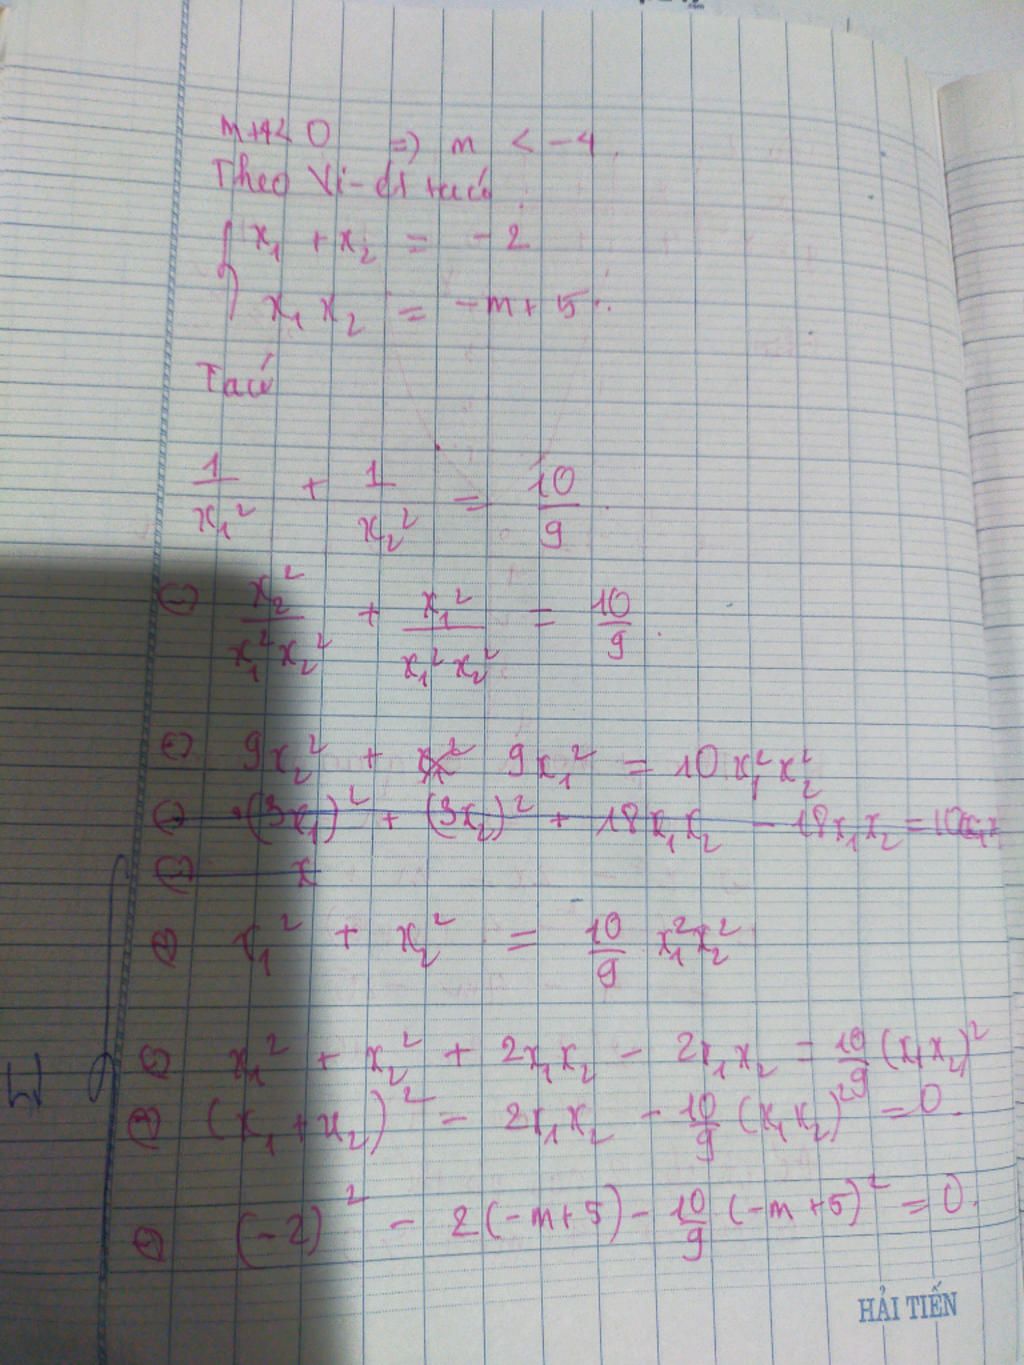 m+4 < 0 => m < -4.
Theo Vi-ét ta có
{ x₁ + x₂ = -2
x₁ x₂ = -m + 5.
Ta có
1/x₁² + 1/x₂² = 10/9.
⇔ x₂²/x₁²x₂² + x₁²/x₁²x₂² = 10/9.
⇔ 9x₂² + x₁² 9x₁² = 10x₁²x₂²
⇔ (3x₁)² + (3x₂)² + 18x₁x₂ - 18x₁x₂ = 10x₁x
⇔ x
⇔ x₁² + x₂² = 10/9 x₁²x₂²
⇔ x₁² + x₂² + 2x₁x₂ - 2x₁x₂ = 10/9 (x₁x₂)²
⇔ (x₁ + x₂)² - 2x₁x₂ - 10/9 (x₁x₂)² = 0.
⇔ (-2)² - 2(-m+5) - 10/9 (-m+5)² = 0.
HẢI TIẾN